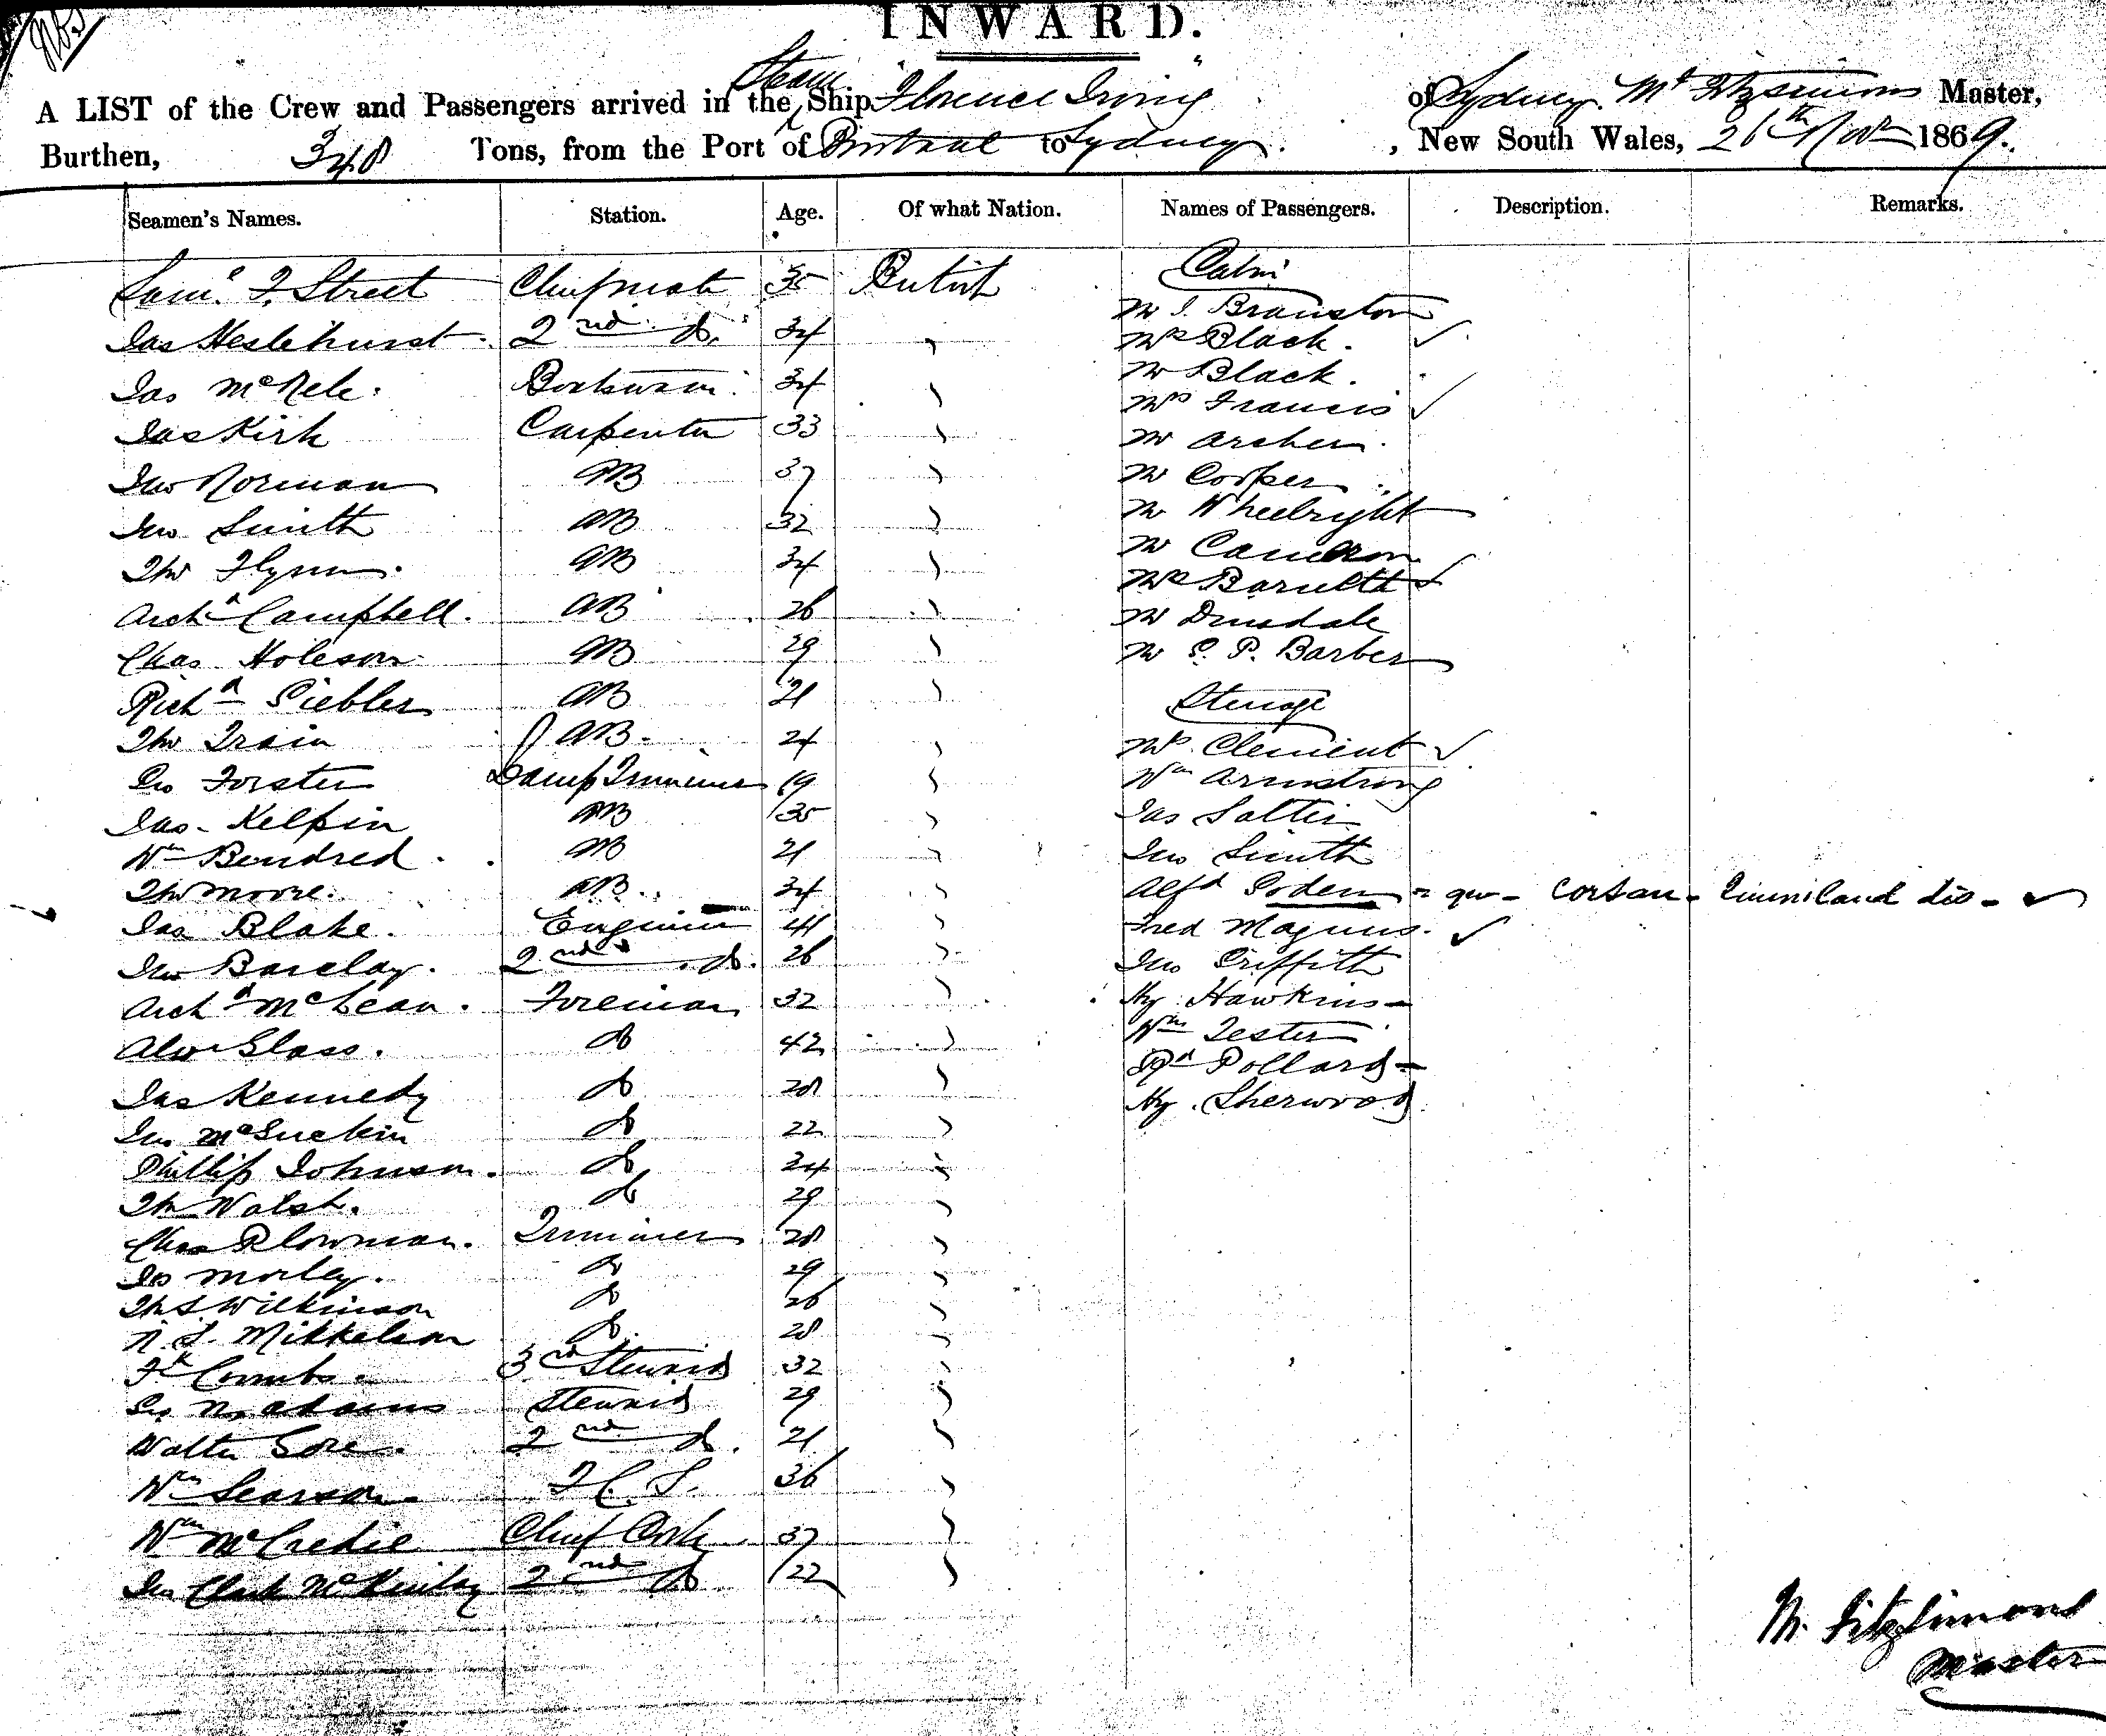 INWARD.
A LIST of the Crew and Passengers arrived in the Steam Ship "Florence Irving" of Sydney. Mt Fitzsimons Master,
Burthen, 348 Tons, from the Port of to Sydney. , New South Wales, 26th Novr 1869.
Seamen's Names. Station. Age. Of what Nation. Names of Passengers. Description. Remarks.
Saml F. Street Chief mate 35 British
Jas Heslehurst 2nd do. 34
Jas Boatswain 34
Jas Kirk Carpenter 33
Jno Norman AB 37
Jno Smith AB 32
Thos Flynn AB 34
Archd Campbell. AB 26
Chas Holeson AB 29
Richd AB 21
Thos Train AB. 24
Geo Forster Trimmer 19
Jas. Kelpin AB 35
Wm Bendred AB 21
Thos Moore. AB. 34
Jas Blake. Engineer 41
Jno Barclay. 2nd do. 26
Archd McLean. Fireman 32
Alexr Glass. do 42
Jas Kennedy do 28
Jno McGuckin do 22
Phillip Johnson. do 34
Thos Walsh. do 29
Chas Plowman. Trimmer 28
Morley. do 29
Thos Wilkinson do 26
N. J. Mikkelson do. 28
Fk Coombs 3rd Steward 32
Geo Adams Steward 29
Walter Gore. 2nd do. 21
Wm Searson F. C. S. 36
Wm McCredie Chief Cook 37
Jno Clark McKinlay 2nd do 22
Cabin
Mr J. Branston
Mrs Black.
Mr Black.
Mrs Francis
Mr Archer.
Mr Cooper
Mr Wheelright
Mr Cameron
Mrs Barnett
Mr Dinsdale
Mr P. Barber
Steerage
Mrs Clement
Wm Armstrong
Jas Salter
Jno Smith
Alfd Soden = qu - Corsan -
Fred Magnus.
Jno Griffith
Hy Hawkins
Wm Lester
Rd Pollard
Hy. Sherwood
M. Fitzsimons
Master